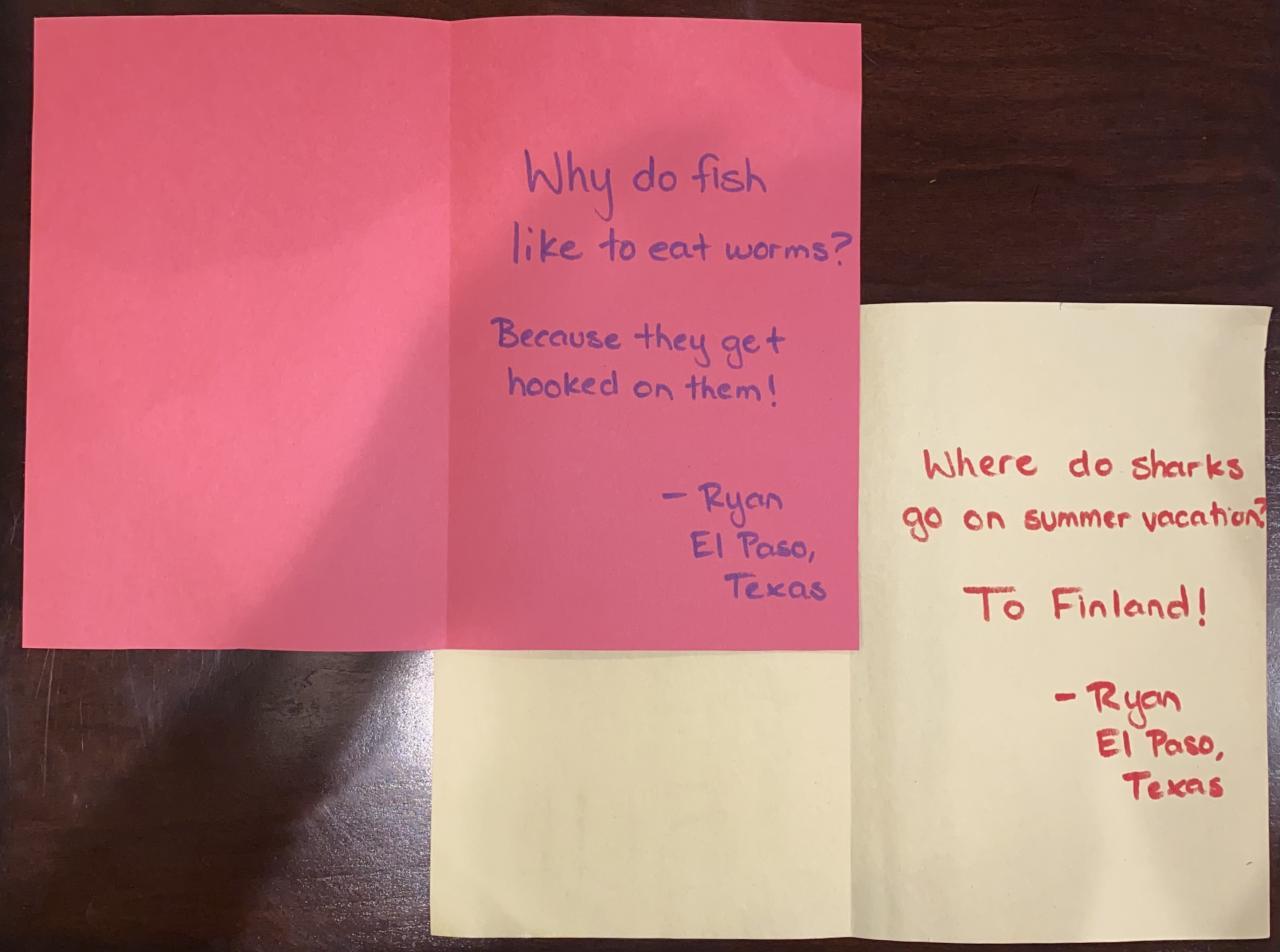 Why do fish
like to eat worms?
Because they get
hooked on them!
- Ryan
El Paso,
Texas
Where do sharks
go on summer vacation?
To Finland!
- Ryan
El Paso,
Texas